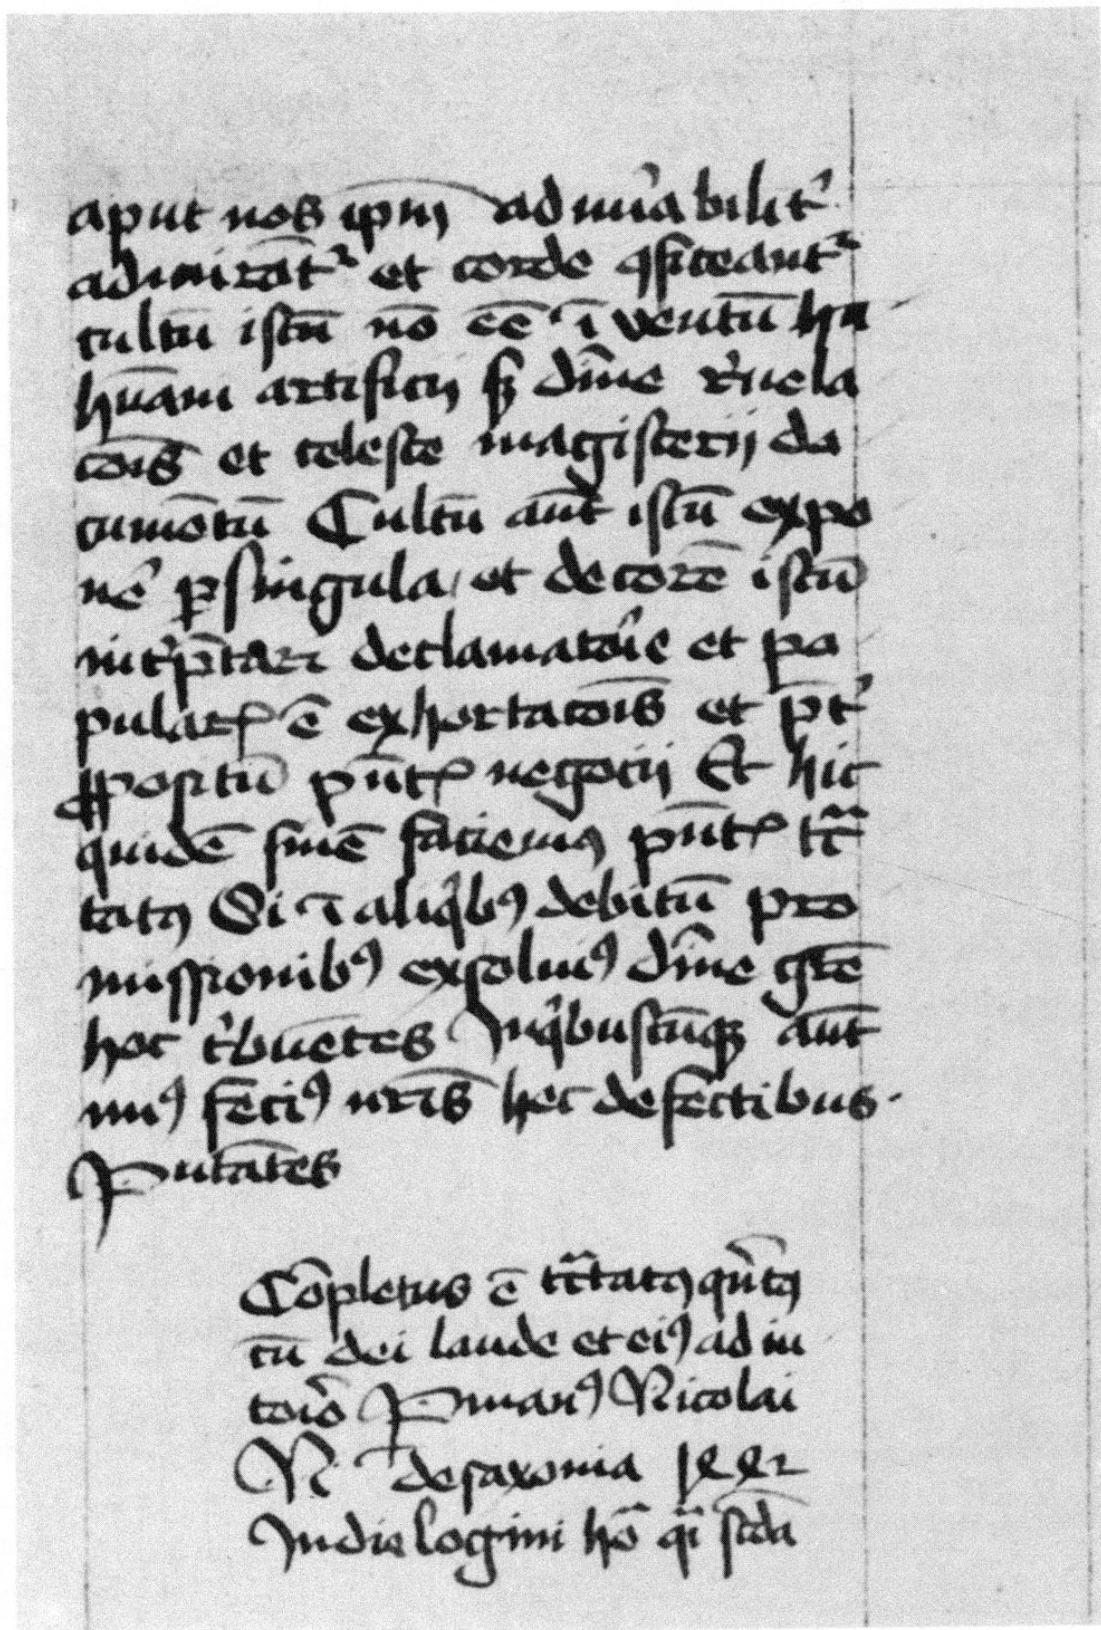 aput nos ip̄m admirabilit᷑
admirāt᷑ et corde ꝯfiteant᷑
cultū istū nō eē ī ventū hu
hūani artificij sꝫ diuīe reuela
cōis et celeste magisterij do
cumētū Cultū aūt istū expo
nē᷑ ꝑ singula et decorē istū
int᷑p̄tari declamatorie et po
pulariꝭ ē exhortacōis et p̄t᷑
ꝓpositū p̄ntꝭ negocij Et hic
quidē finē faciemꝰ p̄ntꝭ trac
tatꝰ Si ī aliqͥbꝰ debitū pro
missionibꝰ exsoluimꝰ diuīe gr̄e
hoc tͥbuētes Inqͥbuscūqꝫ aūt
minꝰ fecimꝰ nr̄is hec defectibus
Putātes
Cōpletus ē tractatꝰ qͥntꝰ
cū dei laude et eiꝰ adiu
torio P manꝰ Nicolai
N de saxonia 1442
In die logini hō qͣi scd̄a